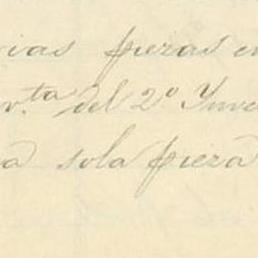 rias piezas en
v.ta del 2º Inve
a sola pieza